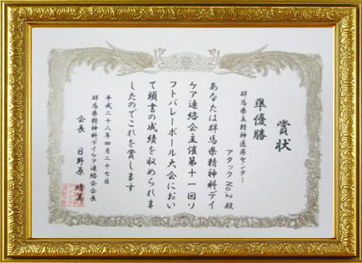 賞状
準優勝
群馬県立精神医療センター
アタックNo.2 殿
あなたは群馬県精神科デイ
ケア連絡会主催第十一回ソ
フトバレーボール大会におい
て頭書の成績を収められま
したのでこれを賞します
平成二十八年四月二十七日
群馬県精神科デイケア連絡会会長
会長 日野原